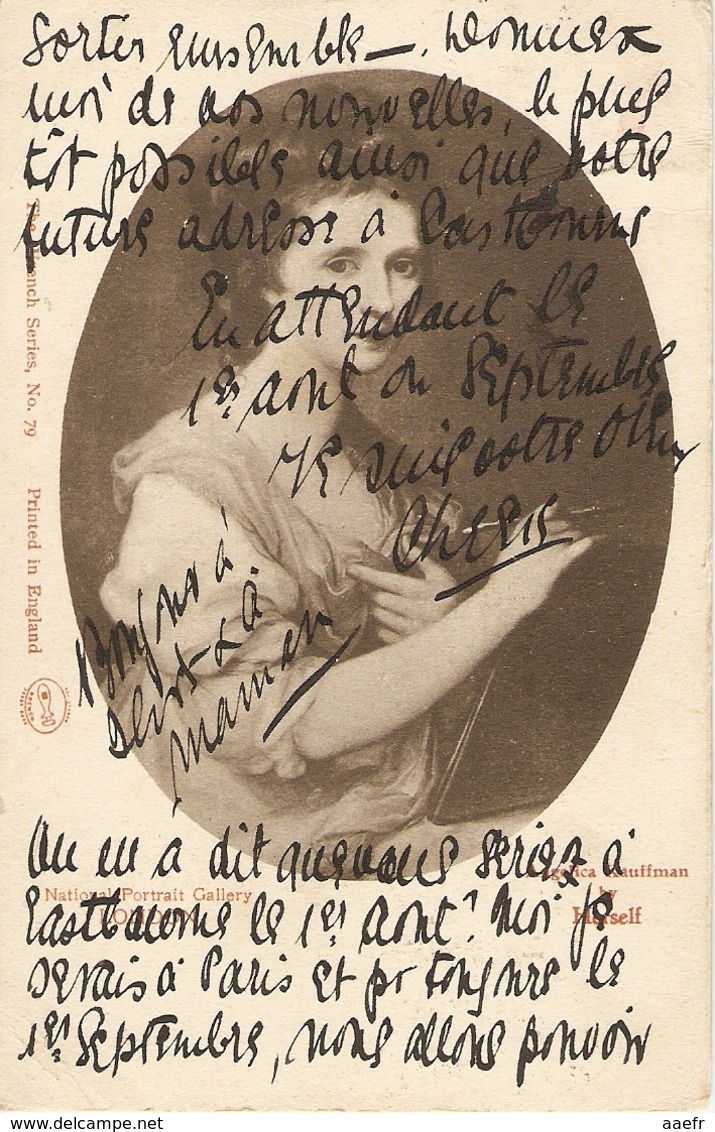 sortir ensemble —. Donnez
moi de vos nouvelles, le plus
tôt possible ainsi que votre
future adresse à Eastbourne
En attendant le
1er août ou Septembre
Je suis votre
Chérie
Bonjour à
à
maman
On m'a dit que vous seriez à
Eastbourne le 1er août? Moi je
serais à Paris et pr toujours le
1er Septembre, nous allons pouvoir
The French Series, No. 79
Printed in England
National Portrait Gallery
LONDON
Angelica Kauffman
by
Herself
delcampe.net
aaefr